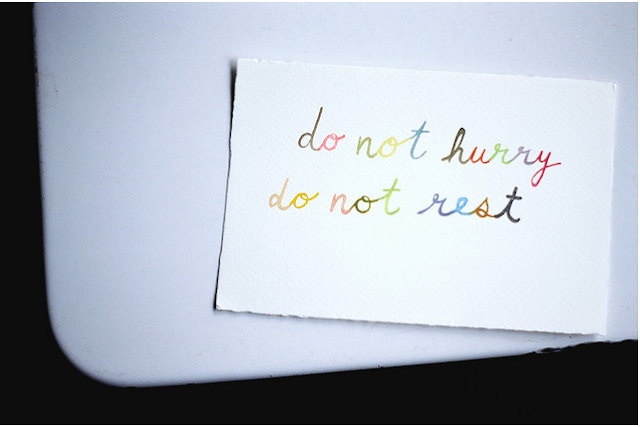 do not hurry
do not rest